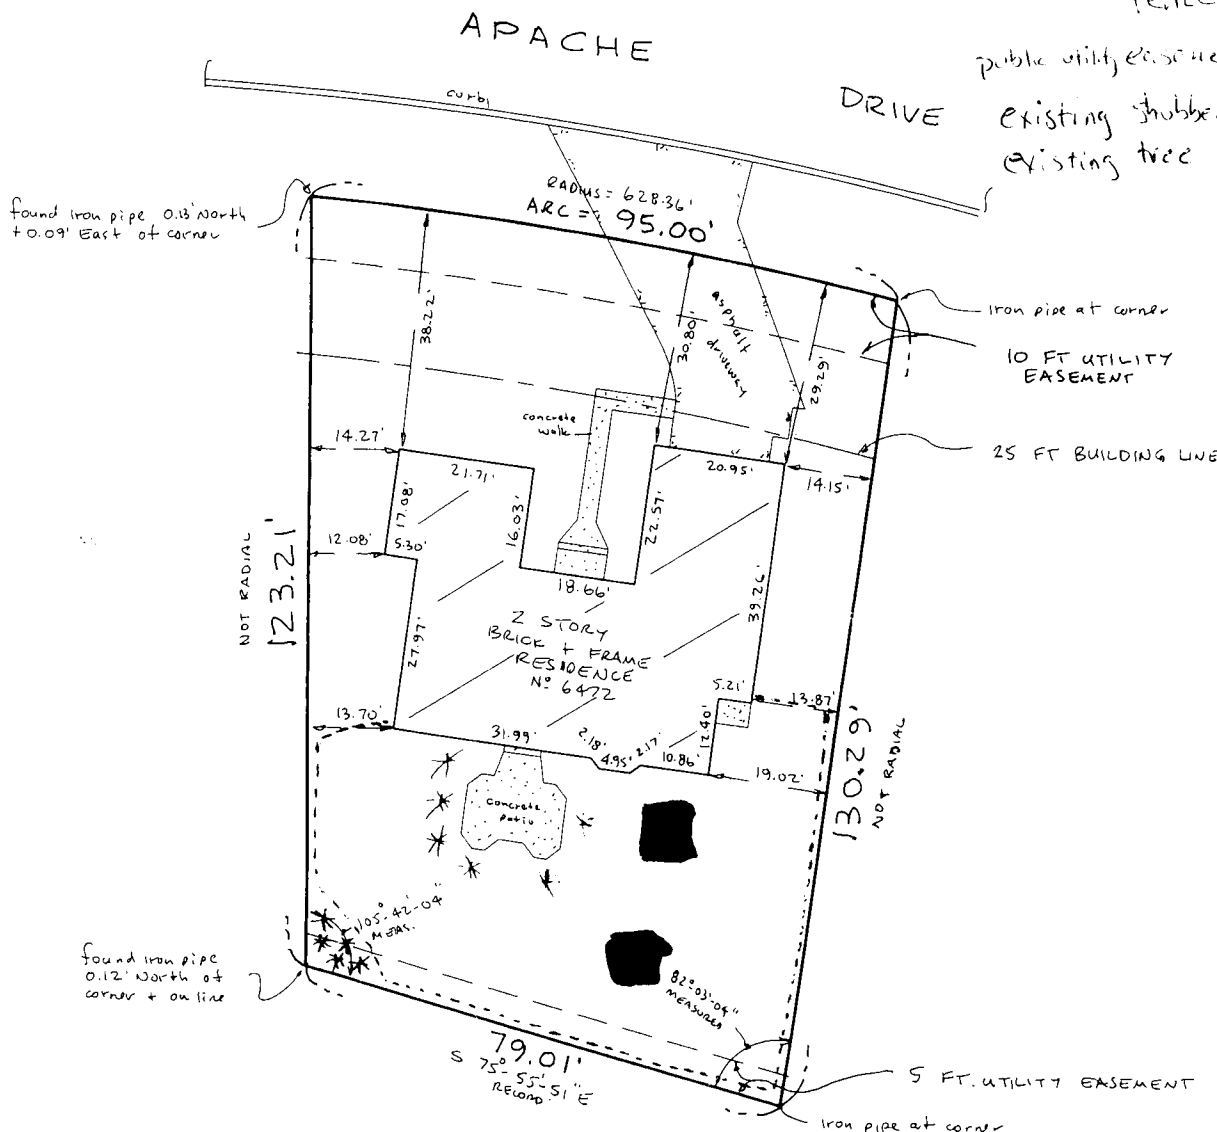 APACHE
DRIVE
public utility
existing
existing tree
curb
RADIUS = 628.36'
ARC = 95.00'
found iron pipe 0.13' North
+0.09' East of corner
iron pipe at corner
10 FT UTILITY
EASEMENT
25 FT BUILDING LINE
38.22'
30.80'
asphalt
driveway
29.29'
concrete
walk
14.27'
21.71'
20.95'
14.15'
17.08'
16.03'
22.57'
12.08'
5.30'
18.66'
39.26'
NOT RADIAL
123.21'
27.97'
2 STORY
BRICK + FRAME
RESIDENCE
Nº 6472
5.21'
13.87'
13.70'
31.99'
2.18'
4.95'
2.17'
10.86'
12.40'
19.02'
130.29'
NOT RADIAL
concrete
patio
105°-42'-04"
MEAS.
82°-03'-04"
MEASURED
found iron pipe
0.12' North of
corner + on line
79.01'
S 75°-55'-51" E
RECORD
5 FT. UTILITY EASEMENT
iron pipe at corner